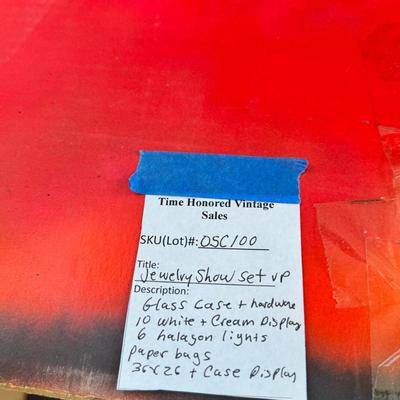 Time Honored Vintage
Sales
SKU(Lot)#: OSC100
Title:
Jewelry Show Set up
Description:
Glass Case + hardware
10 white + Cream Display
6 halagon lights
paper bags
36x26 + Case Display